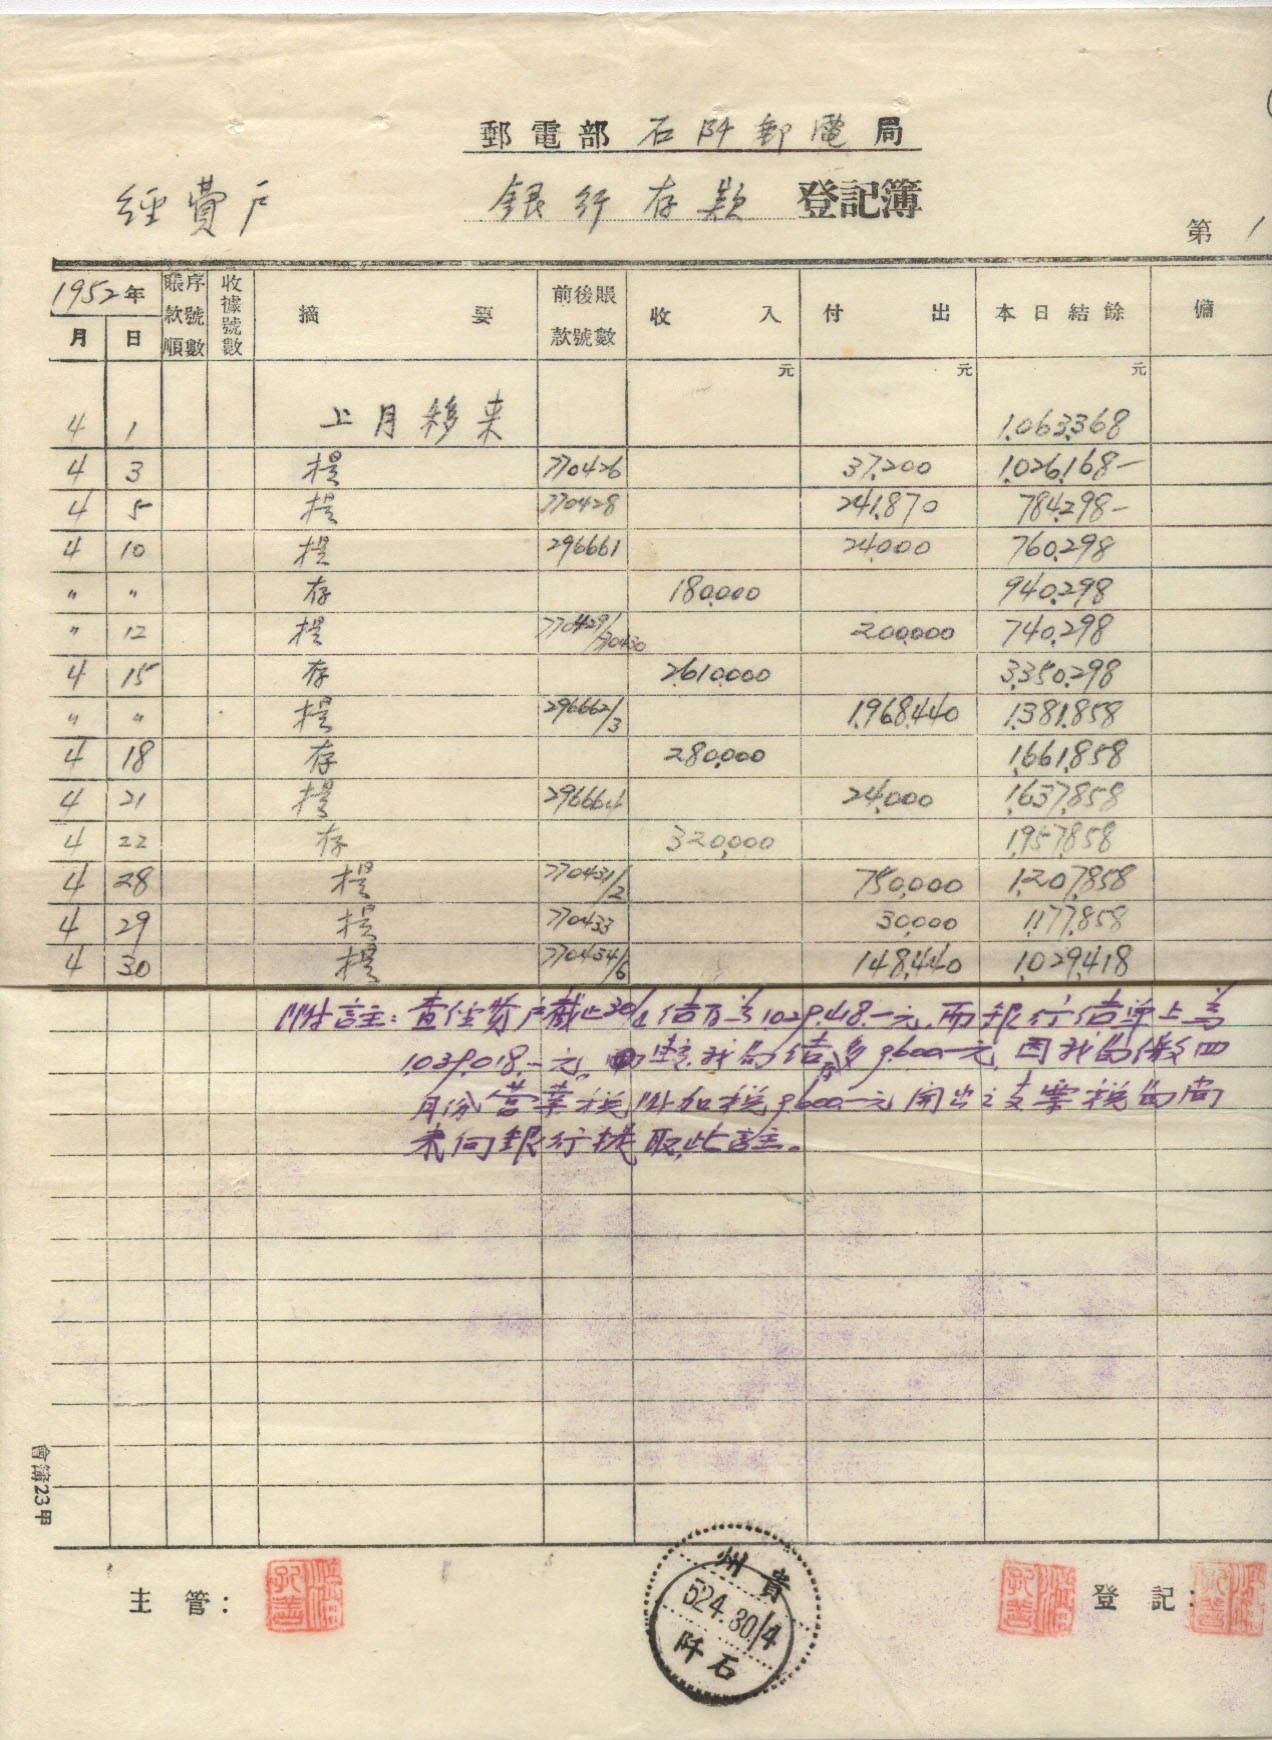 郵電部 石阡郵電 局
經費戶 銀行存款 登記簿
第 1
1952年 月 日 賬款順序號數 收據號數 摘要 前後賬款號數 收入 付出 本日結餘 備
元 元 元
4 1 上月移来 1,063,368
4 3 提 770426 37,200 1,026,168-
4 5 提 770428 241,870 784,298-
4 10 提 296661 24,000 760,298
〃 〃 存 180,000 940,298
〃 12 提 770429/770430 200,000 740,298
4 15 存 2,610,000 3,350,298
〃 〃 提 296662/3 1,968,440 1,381,858
4 18 存 280,000 1,661,858
4 21 提 296664 24,000 1,637,858
4 22 存 320,000 1,957,858
4 28 提 770431/2 750,000 1,207,858
4 29 提 770433 30,000 1,177,858
4 30 提 770434/6 148,440 1,029,418
附註：查经费户截止30/4结存为1,029,418.-元，而銀行结单上为
1,039,018.-元，我局结存 9,600-元，因我局缴四
月份营業税附加税9,600.-元開出之支票税局尚
未向銀行提取，此註。
會簿23甲
主管： 登記：
貴州
52.4.30/4
石阡